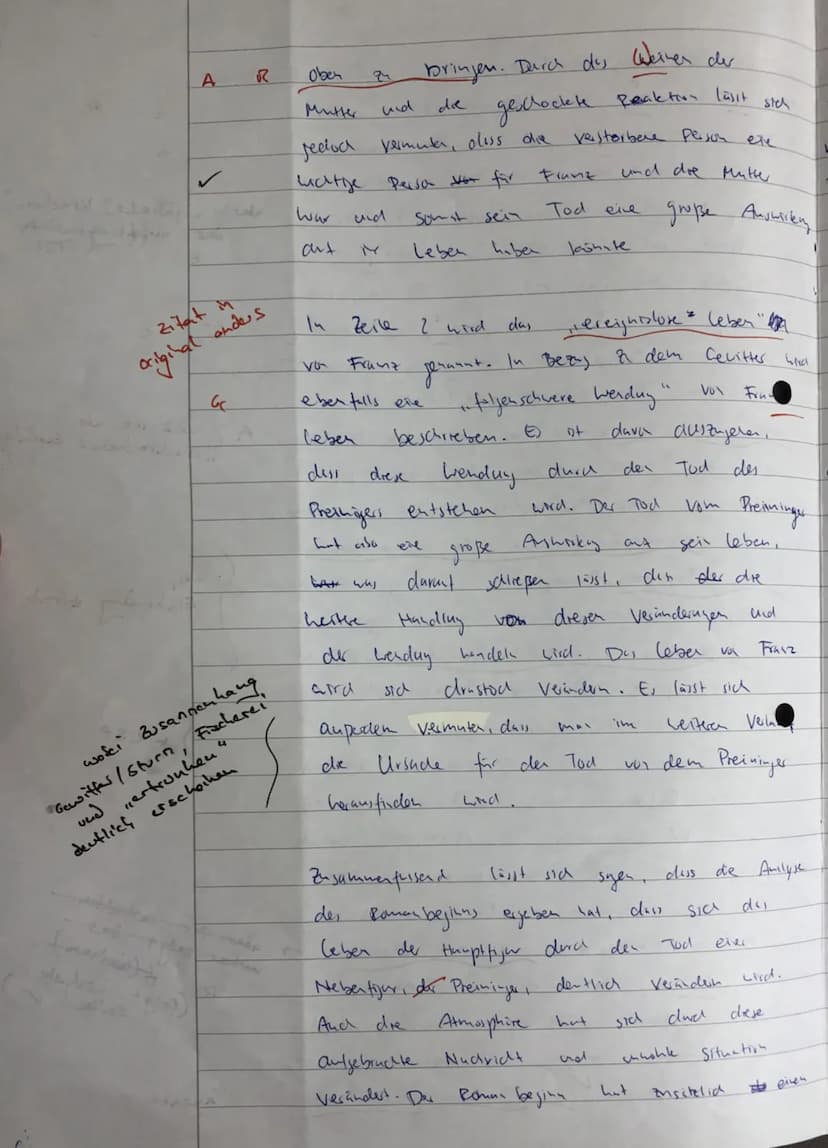 A R oben zu bringen. Durch das Weinen der
Mutter und die geschockte Reaktion lässt sich
jedoch vermuten, dass die verstorbene Person eine
✓ wichtige Person für Franz und die Mutter
war und somit sein Tod eine große Auswirkung
auf ihr Leben haben könnte
Zitat in
original anders
In Zeile 2 wird das „ereignislose" Leben"
von Franz genannt. In Bezug zu dem Gewitter wird
Gr ebenfalls eine „folgenschwere Wendung" von
Leben beschrieben. Es ist davon auszugehen,
dass diese Wendung durch den Tod des
Preiningers entstehen wird. Der Tod vom Preininger
hat also eine große Auswirkung auf sein Leben,
was darauf schließen lässt, dass die
weitere Handlung von diesen Veränderungen und
der Wendung handeln wird. Das Leben von Franz
wird sich drastisch verändern. Es lässt sich
außerdem vermuten, dass man im weiteren
die Ursache für den Tod von dem Preininger
herausfinden wird.
wobei Zusammenhang
Gewitter/Sturm, Fischerei
und „ertrunken"
deutlich erscheinen
Zusammenfassend lässt sich sagen, dass die Analyse
des Romanbeginns ergeben hat, dass sich das
Leben der Hauptfigur durch den Tod einer
Nebenfigur, der Preininger, deutlich verändern wird.
Auch die Atmosphäre hat sich durch diese
aufgebrachte Nachricht und Situation
verändert. Der Romanbeginn hat zusätzlich einen